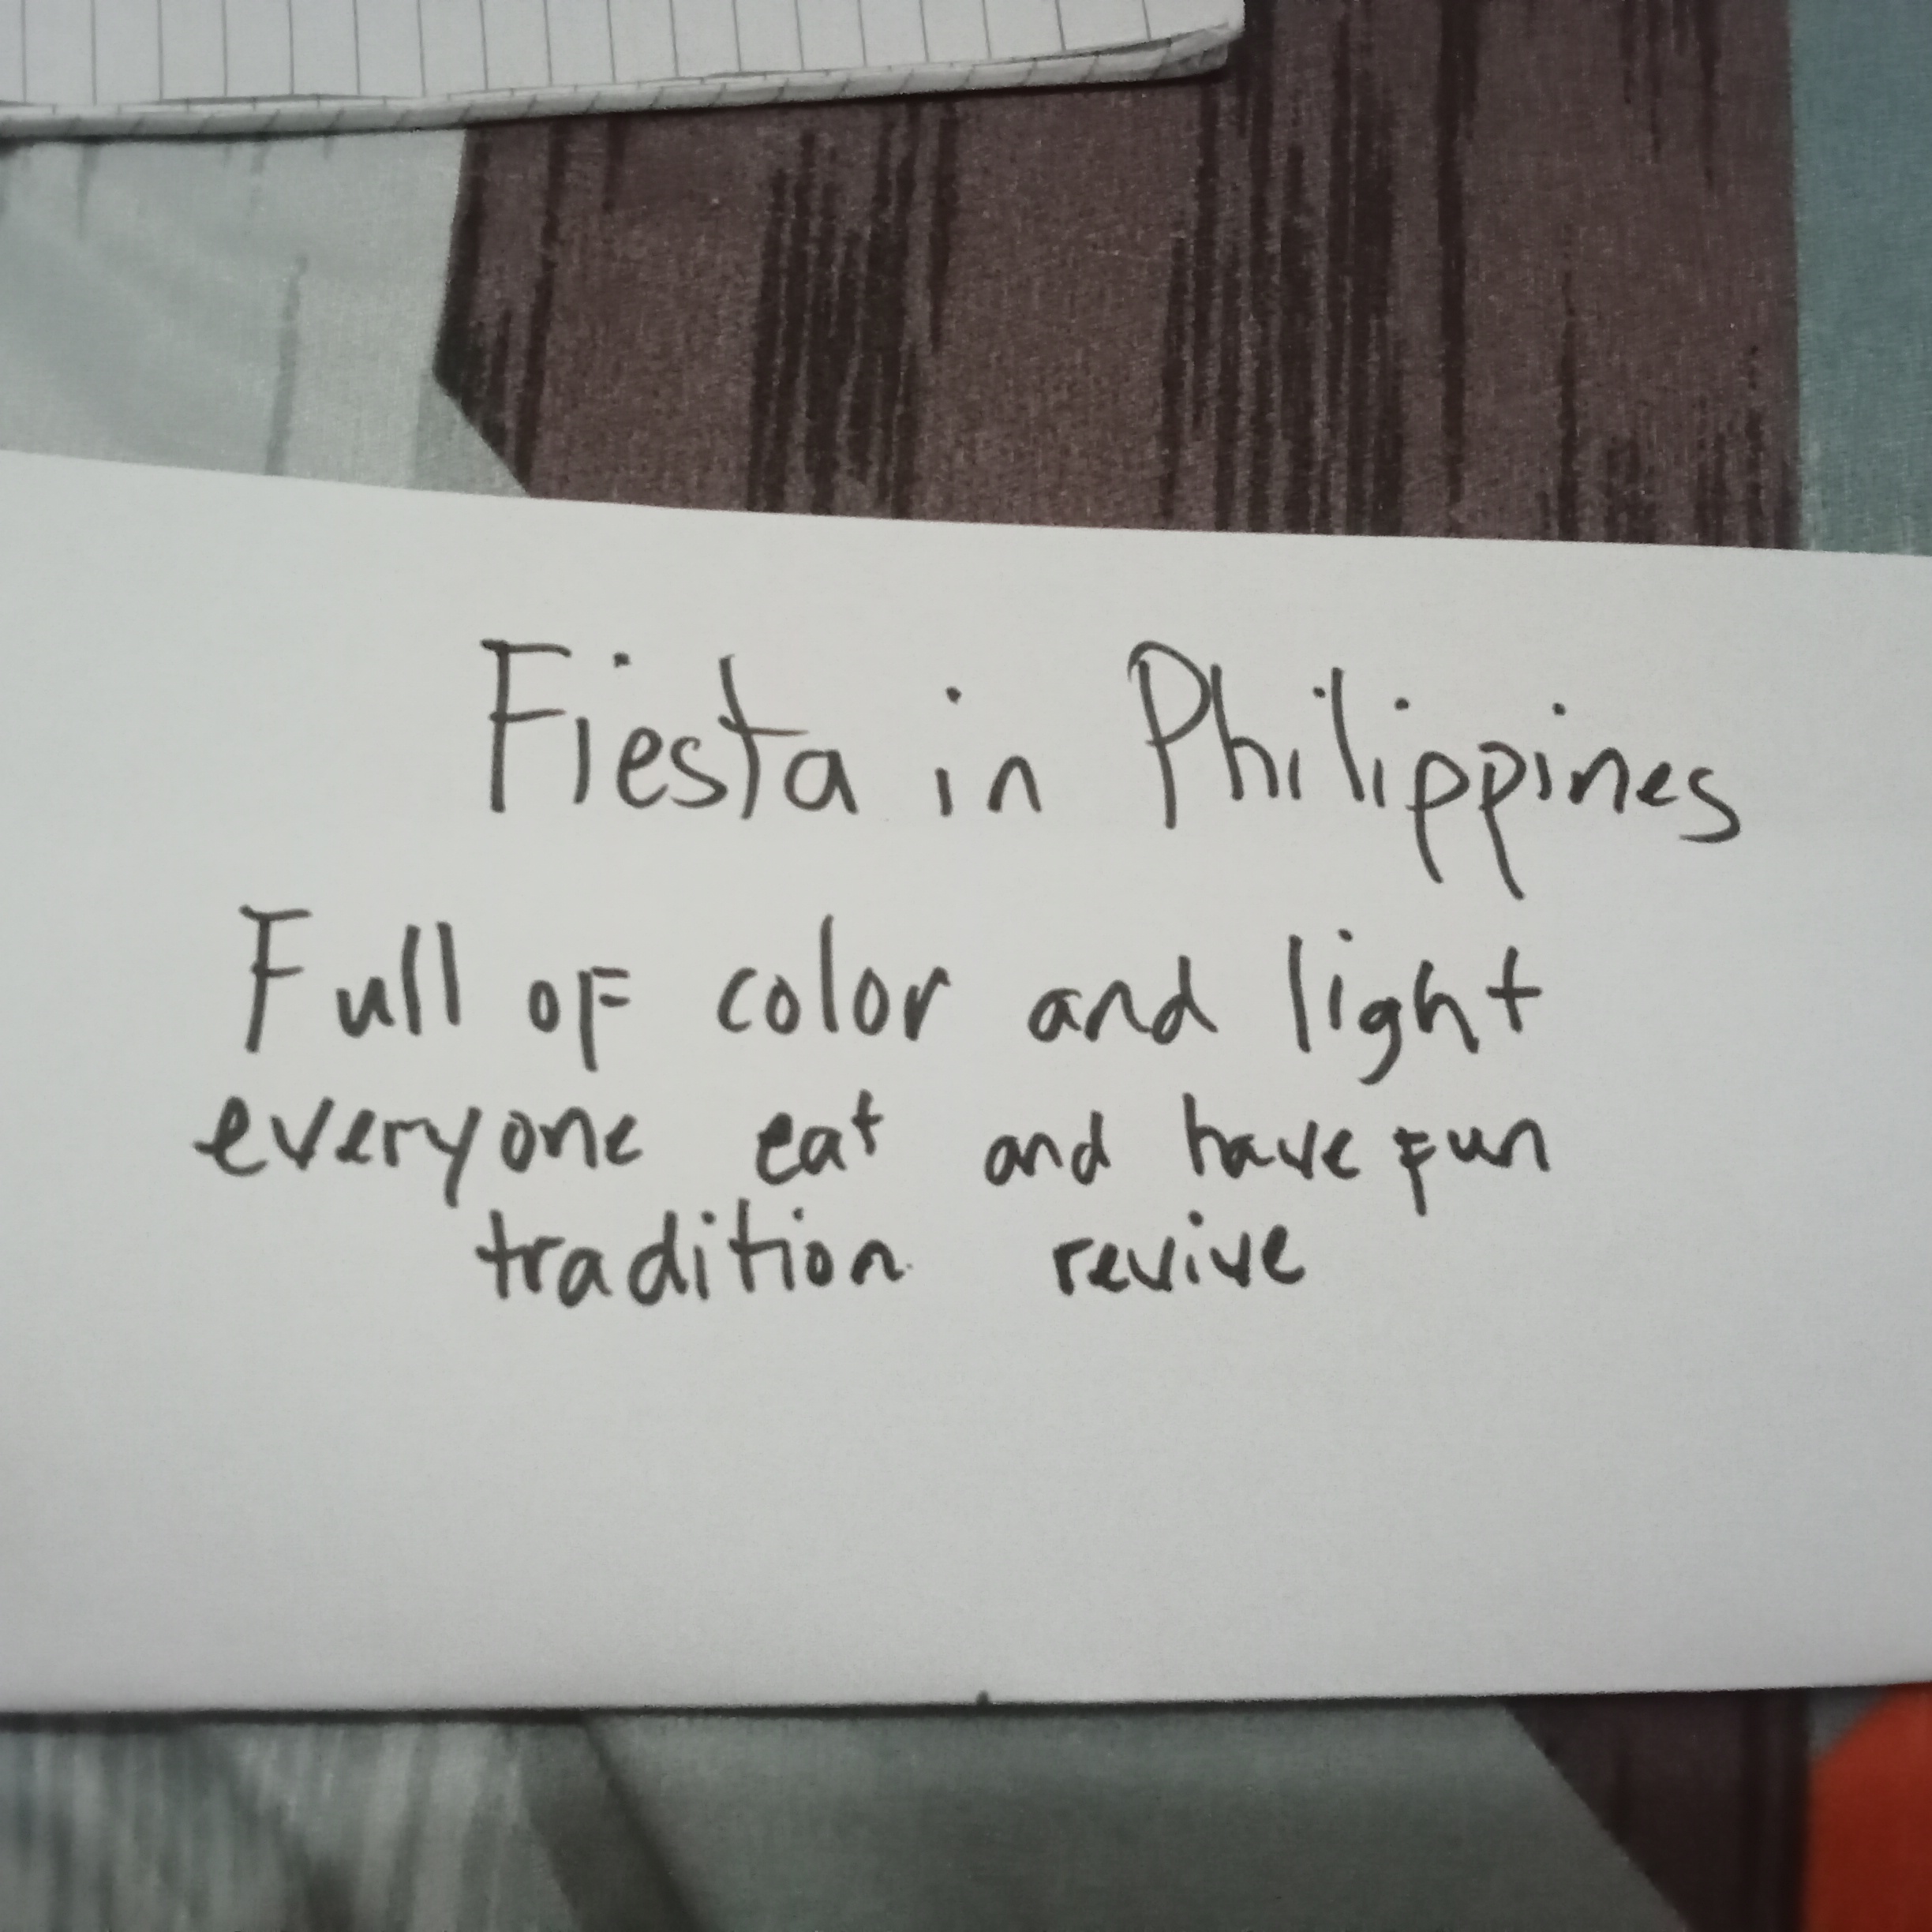 Fiesta in Philippines
Full of color and light
everyone eat and have fun
tradition revive